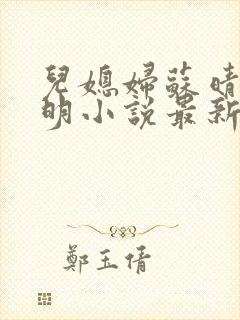 兒媳婦蘇晴
明小說最新
鄭玉倩